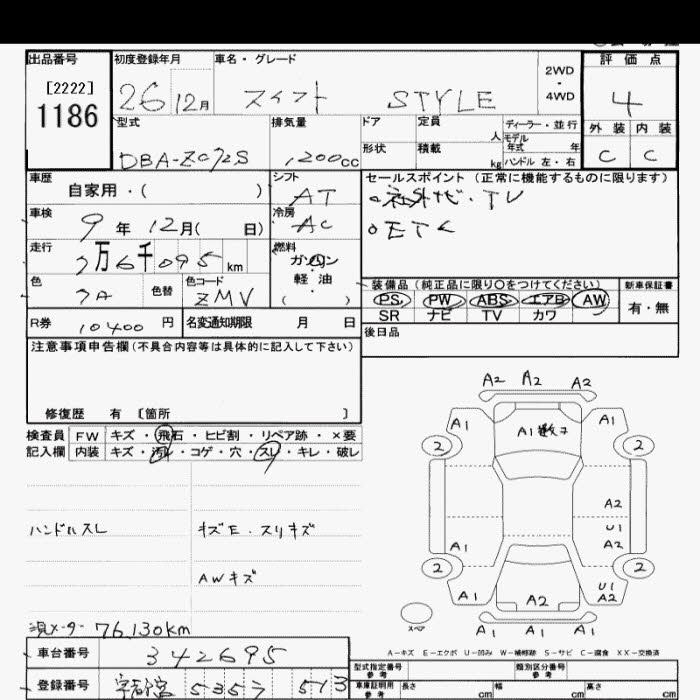 出品番号 初度登録年月 車名・グレード 2WD・4WD 評価点
[2222]
1186 26 12月 スイフト STYLE 4
型式 排気量 ドア 定員 人 ディーラー・並行 外装 内装
モデル年式 年
DBA-ZC72S 1,200cc 形状 積載 kg ハンドル 左・右 C C
車歴 自家用・( ) シフト AT セールスポイント (正常に機能するものに限ります)
。社外ナビ・TV
車検 9年 12月( 日) 冷房 AC 。ETC
走行 7万6千095km 燃料 ガソリン・軽油・( )
装備品 (純正品に限り○をつけてください) 新車保証書
色 色替 色コード ZMV PS PW ABS エアB AW 有・無
SR ナビ TV カワ
R券 10400円 名変通知期限 月 日 後日品
注意事項申告欄(不具合内容等は具体的に記入して下さい)
修復歴 有 〔箇所 〕
検査員 FW キズ・飛石・ヒビ割・リペア跡・×要
記入欄 内装 キズ・汚レ・コゲ・穴・スレ・キレ・破レ
A2 A2 A2
A1 A1
2 2
A2
ハンドルスレ キズE・スリキズ U1
A1 A2
AWキズ 2 2
U1
A1 A2 A2
スペア
A1 A1 A1
現メーター 76,130km
A-キズ E-エクボ U-凹み W-補修跡 S-サビ C-腐食 XX-交換済
車台番号 342695
型式指定番号 参考 類別区分番号 参考
登録番号 宇都宮 5357 513
車庫証明用 参考 長さ cm 幅 cm 高さ cm